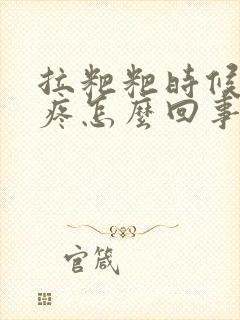 拉粑粑時候
疼怎麼回事
官箴